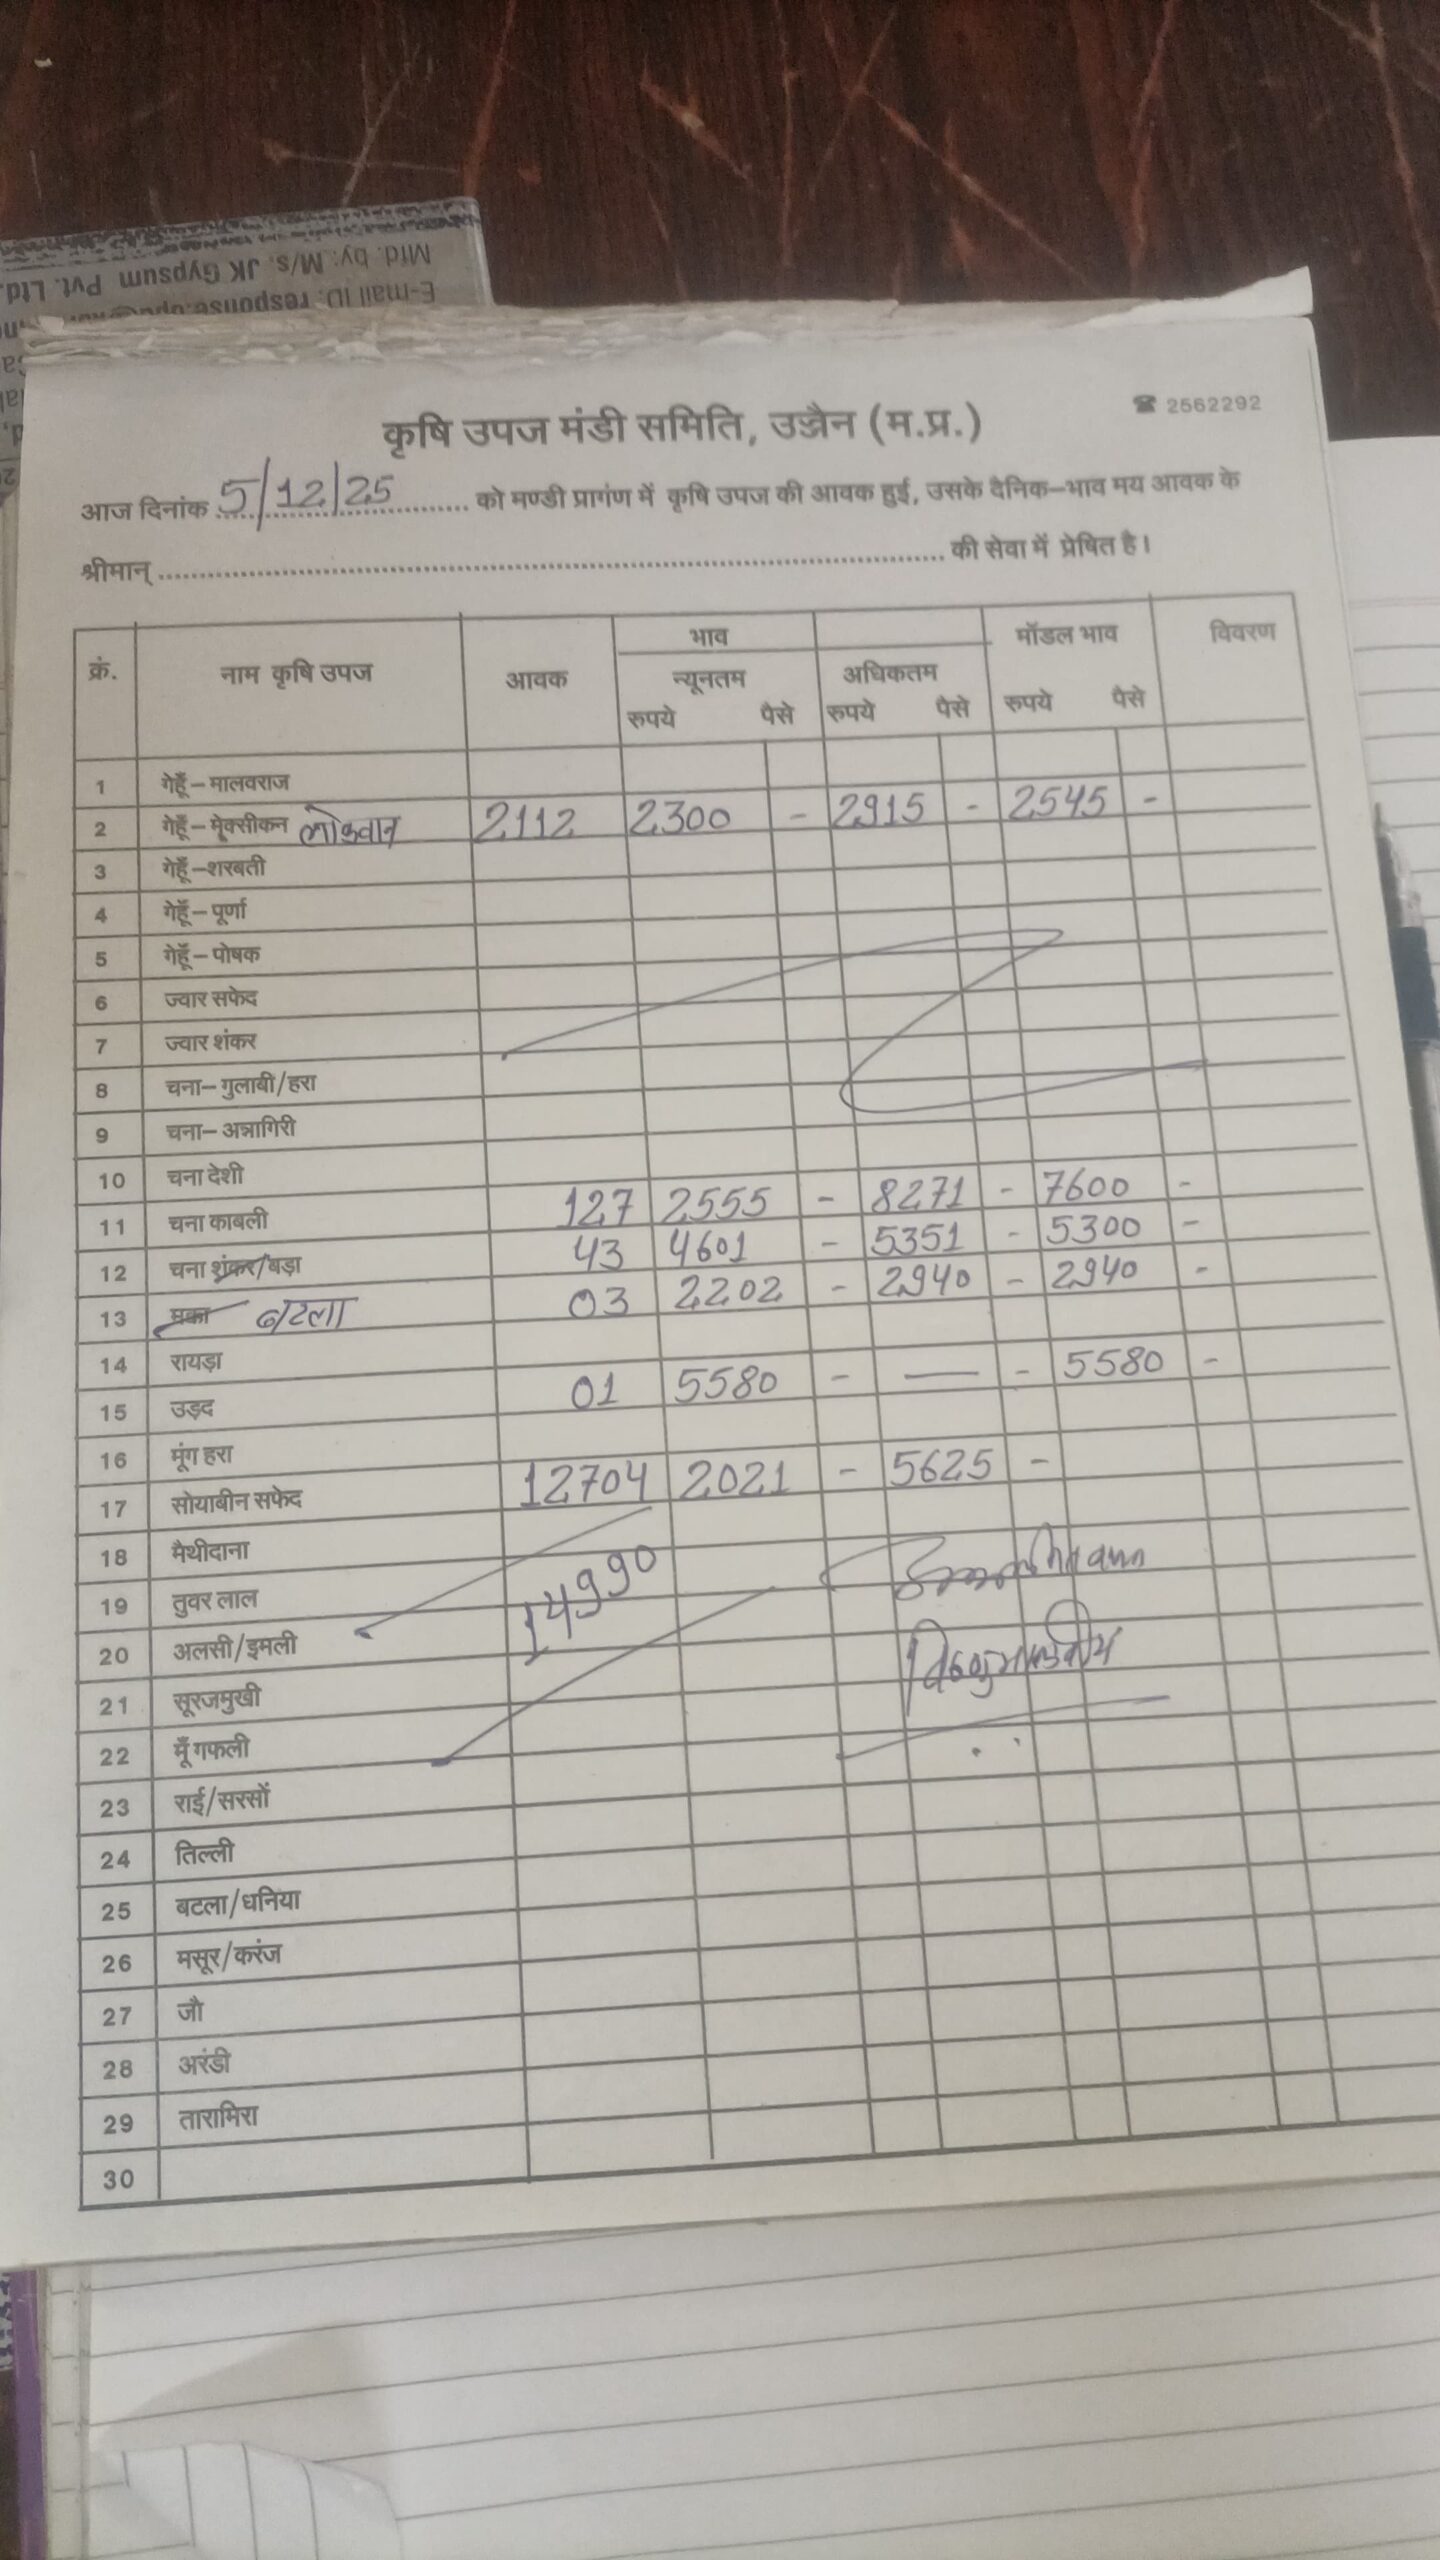 Mfd. by: M/s. JK Gypsum Pvt. Ltd.
E-mail ID: response
कृषि उपज मंडी समिति, उज्जैन (म.प्र.) ☎ 2562292
आज दिनांक 5/12/25 को मण्डी प्रागंण में कृषि उपज की आवक हुई, उसके दैनिक-भाव मय आवक के
श्रीमान् की सेवा में प्रेषित है।
क्रं. नाम कृषि उपज आवक भाव मॉडल भाव विवरण
न्यूनतम अधिकतम
रुपये पैसे रुपये पैसे रुपये पैसे
1 गेहूँ-मालवराज
2 गेहूँ-मेक्सीकन लोकवान 2112 2300 - 2915 - 2545 -
3 गेहूँ-शरबती
4 गेहूँ-पूर्णा
5 गेहूँ-पोषक
6 ज्वार सफेद
7 ज्वार शंकर
8 चना-गुलाबी/हरा
9 चना-अन्नागिरी
10 चना देशी
11 चना काबली 127 2555 - 8271 - 7600 -
12 चना शंकर/बड़ा 43 4601 - 5351 - 5300 -
13 मक्का बटला 03 2202 - 2940 - 2940 -
14 रायड़ा
15 उड़द 01 5580 - — - 5580 -
16 मूंग हरा
17 सोयाबीन सफेद 12704 2021 - 5625 -
18 मैथीदाना
19 तुवर लाल 14990
20 अलसी/इमली
21 सूरजमुखी
22 मूँगफली
23 राई/सरसों
24 तिल्ली
25 बटला/धनिया
26 मसूर/करंज
27 जौ
28 अरंडी
29 तारामिरा
30